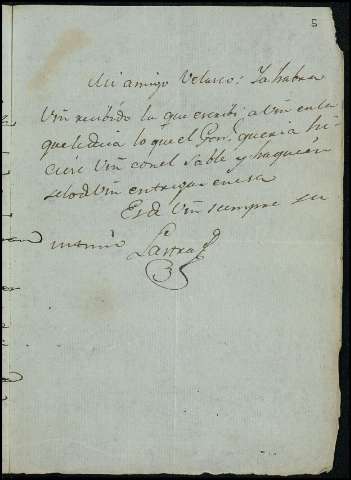 5
Mi amigo Velasco: Ya habra
Vm recibido la que escribi a Vm en la
que le decia lo que el Genl. queria hi
ciese Vm con el Sable y ha quien
se lo de Vm entregar en esa
Es de Vm siempre su
mismo Lastra